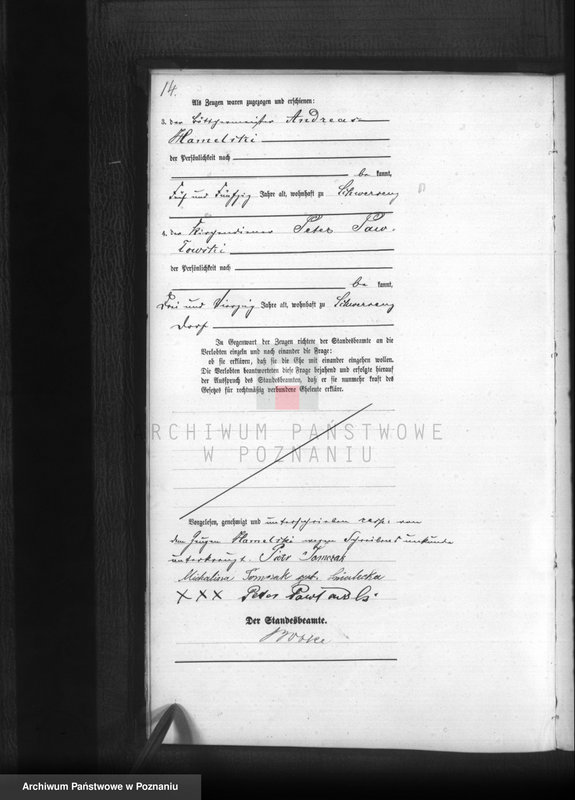 14.
Als Zeugen waren zugezogen und erschienen:
3. der Böttchermeister Andreas
Hamelski
der Persönlichkeit nach
be kannt,
Fünf und Fünfzig Jahre alt, wohnhaft zu Schwersenz
4. der Kirchendiener Peter Paw-
lowski
der Persönlichkeit nach
be kannt,
Drei und Vierzig Jahre alt, wohnhaft zu Schwersenz
Dorf
In Gegenwart der Zeugen richtete der Standesbeamte an die
Verlobten einzeln und nach einander die Frage:
ob sie erklären, daß sie die Ehe mit einander eingehen wollen.
Die Verlobten beantworteten diese Frage bejahend und erfolgte hierauf
der Ausspruch des Standesbeamten, daß er sie nunmehr kraft des
Gesetzes für rechtmäßig verbundene Eheleute erkläre.
ARCHIWUM PAŃSTWOWE
W POZNANIU
Vorgelesen, genehmigt und unterschrieben resp. von
dem Zeugen Hamelski wegen Schreibensunkunde
unterkreuzt. Piotr Tomczak
Michalina Tomczak geb.
XXX Peter Pawlowski
Der Standesbeamte.
Archiwum Państwowe w Poznaniu